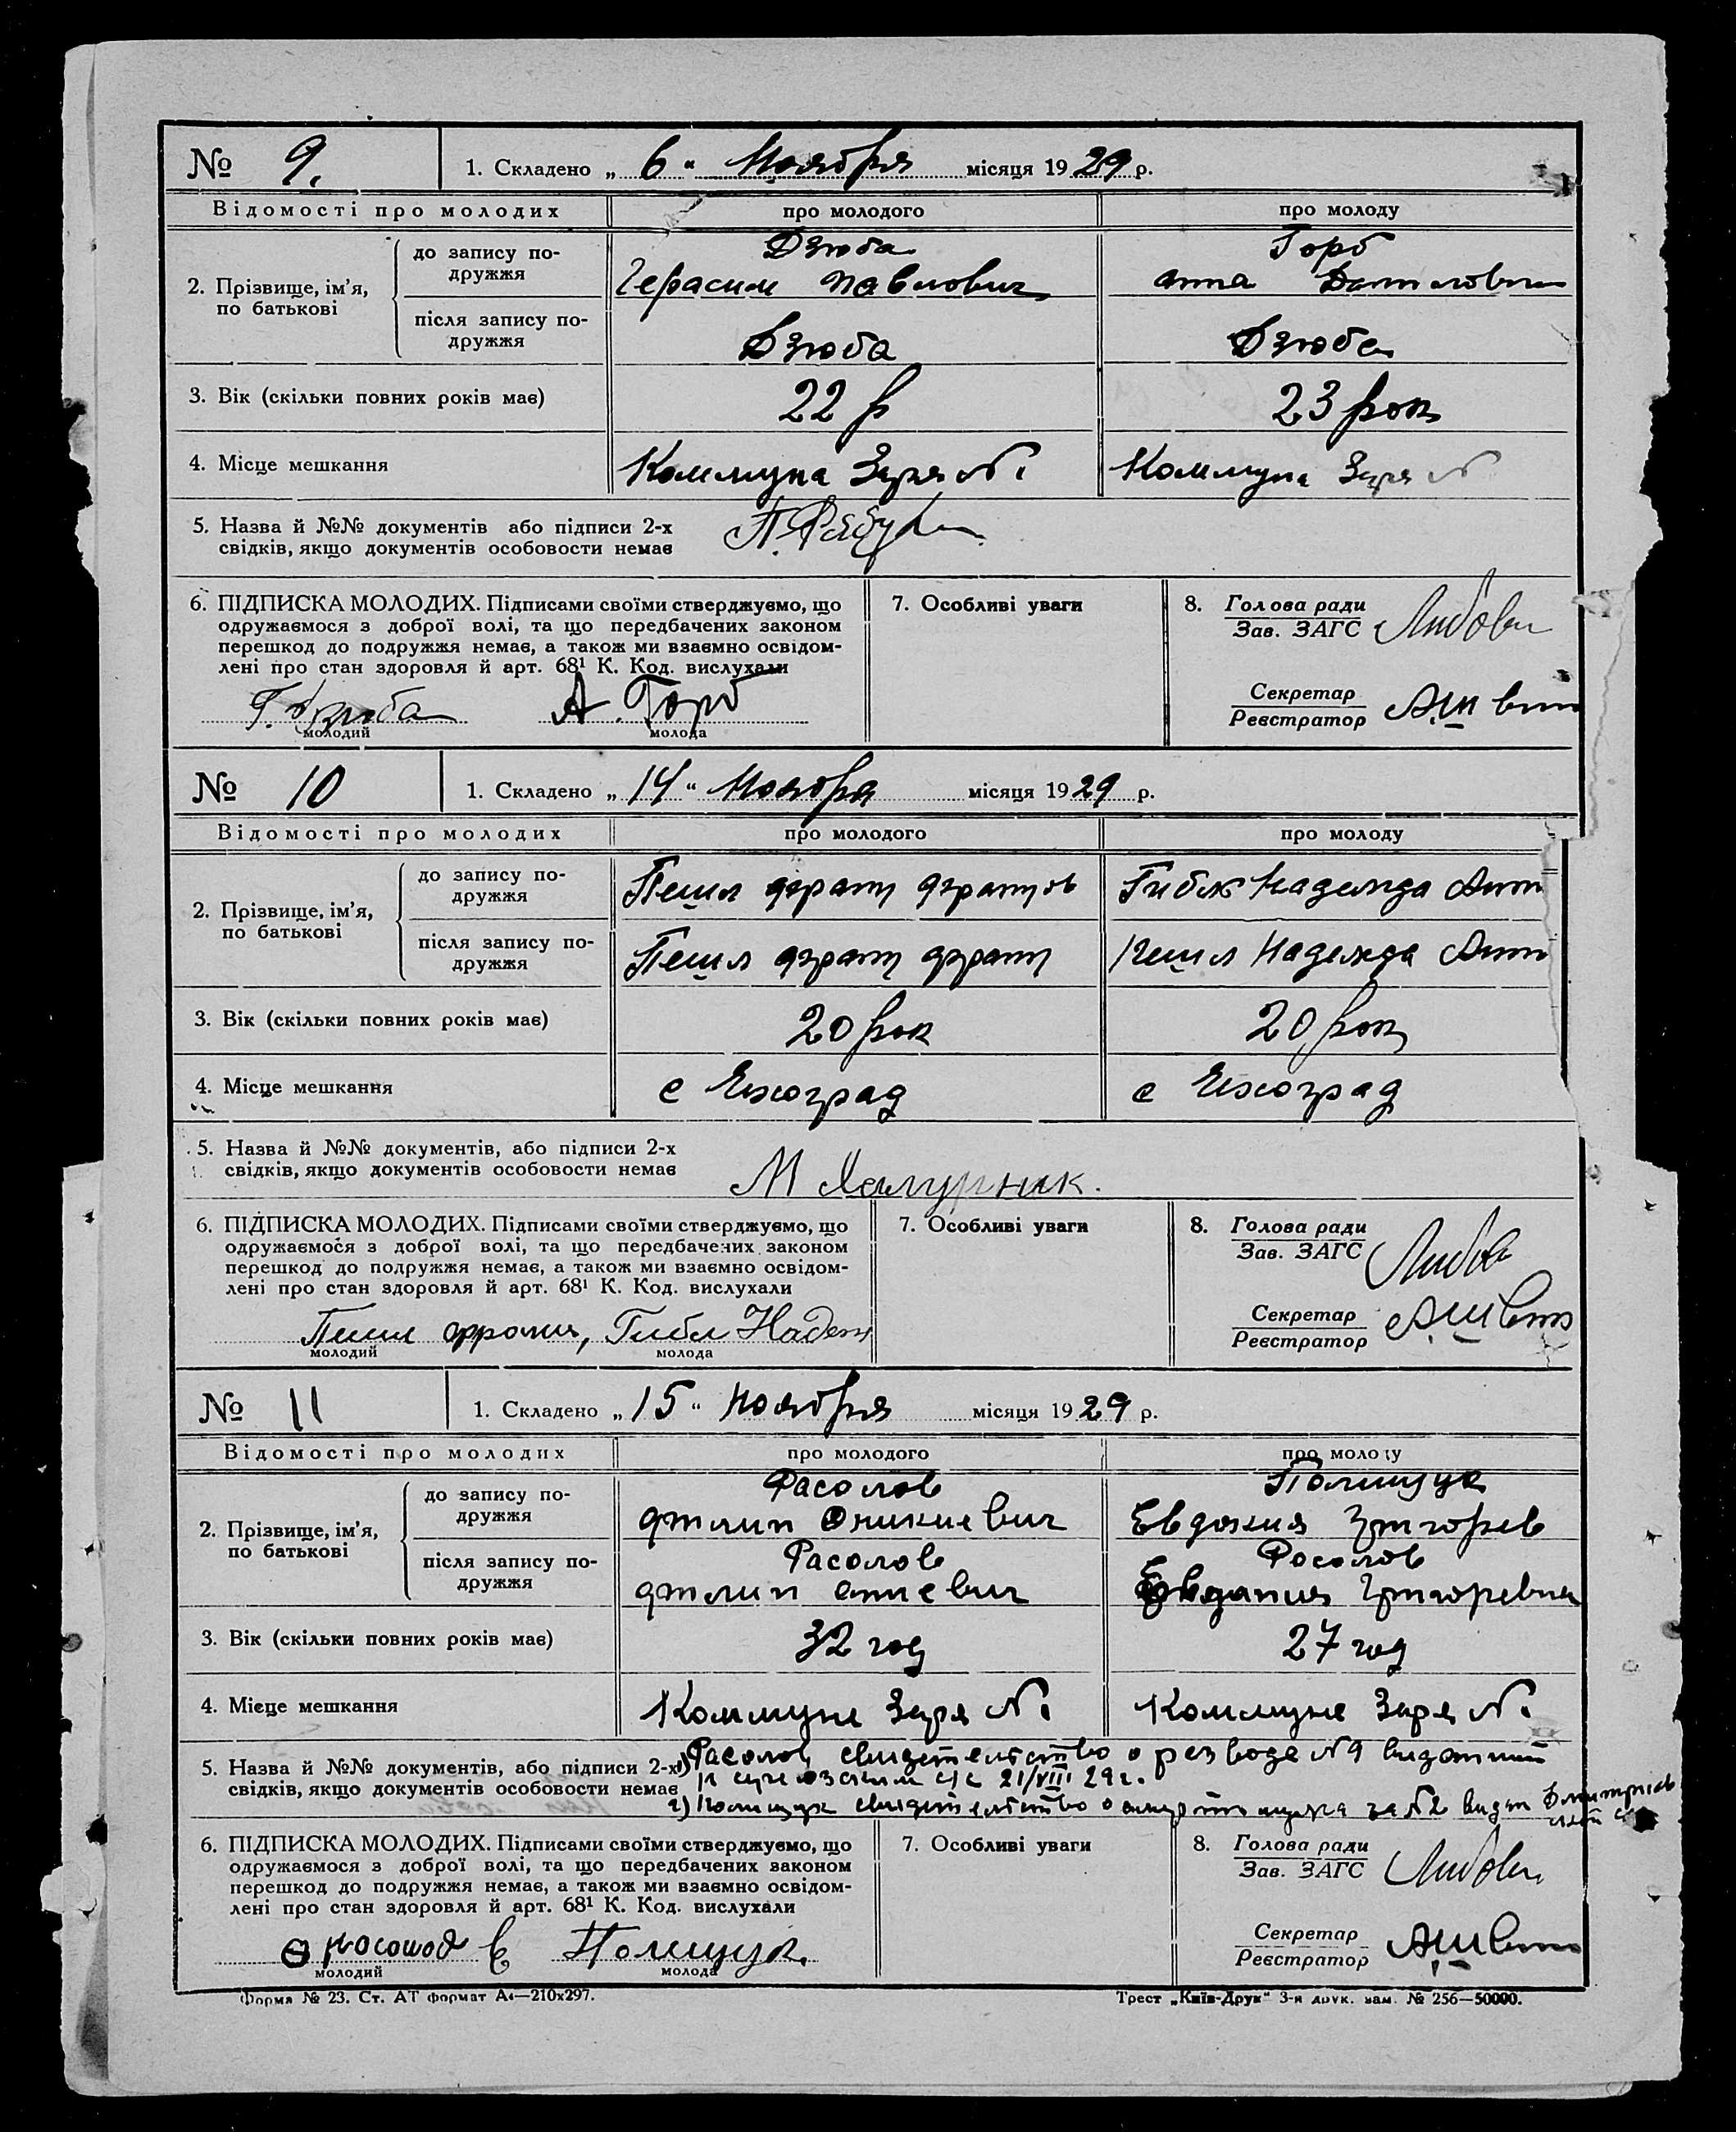 № 9. 1. Складено „ 6 " Ноября місяця 1929 р.
Відомості про молодих про молодого про молоду
2. Прізвище, ім'я, по батькові
до запису по-
дружжя
Дзюба
Герасим Павлович
Горб
Анна
після запису по-
дружжя
Дзюба Дзюба
3. Вік (скільки повних років має) 22 р 23 рок
4. Місце мешкання Коммуна Заря №1 Коммуна Заря №
5. Назва й №№ документів або підписи 2-х
свідків, якщо документів особовости немає
6. ПІДПИСКА МОЛОДИХ. Підписами своїми стверджуємо, що
одружаємося з доброї волі, та що передбачених законом
перешкод до подружжя немає, а також ми взаємно освідом-
лені про стан здоровля й арт. 68¹ К. Код. вислухали
Г. Дзюба А. Горб
молодий молода
7. Особливі уваги
8. Голова ради
Зав. ЗАГС
Секретар
Реєстратор
№ 10 1. Складено „ 14 " Ноября місяця 1929 р.
Відомості про молодих про молодого про молоду
2. Прізвище, ім'я, по батькові
до запису по-
дружжя
Пешл Франц Францов Надежда Ант
після запису по-
дружжя
Пешл Франц Франц Пешл Надежда Ант
3. Вік (скільки повних років має) 20 рок 20 рок
4. Місце мешкання с с
5. Назва й №№ документів, або підписи 2-х
свідків, якщо документів особовости немає
6. ПІДПИСКА МОЛОДИХ. Підписами своїми стверджуємо, що
одружаємося з доброї волі, та що передбачених законом
перешкод до подружжя немає, а також ми взаємно освідом-
лені про стан здоровля й арт. 68¹ К. Код. вислухали
молодий молода
7. Особливі уваги
8. Голова ради
Зав. ЗАГС
Секретар
Реєстратор
№ 11 1. Складено „ 15 " Ноября місяця 1929 р.
Відомості про молодих про молодого про молоду
2. Прізвище, ім'я, по батькові
до запису по-
дружжя
Расолов
Филип Оникиевич
Полищук
Евдокия Григорев
після запису по-
дружжя
Расолов
Филип
Росолов
Григоревна
3. Вік (скільки повних років має) 32 год 27 год
4. Місце мешкання Коммуне Заря №1 Коммуне Заря №1
5. Назва й №№ документів, або підписи 2-х
свідків, якщо документів особовости немає
1) Расолов свидетельство о разводе №9
21/VIII 29 г.
2) Полищук свидетельство о мужа за №2 видан
6. ПІДПИСКА МОЛОДИХ. Підписами своїми стверджуємо, що
одружаємося з доброї волі, та що передбачених законом
перешкод до подружжя немає, а також ми взаємно освідом-
лені про стан здоровля й арт. 68¹ К. Код. вислухали
Полищук
молодий молода
7. Особливі уваги
8. Голова ради
Зав. ЗАГС
Секретар
Реєстратор
Форма № 23. Ст. АТ формат А4—210х297. Трест „Київ-Друк" 3-я друк. зам. № 256—50000.